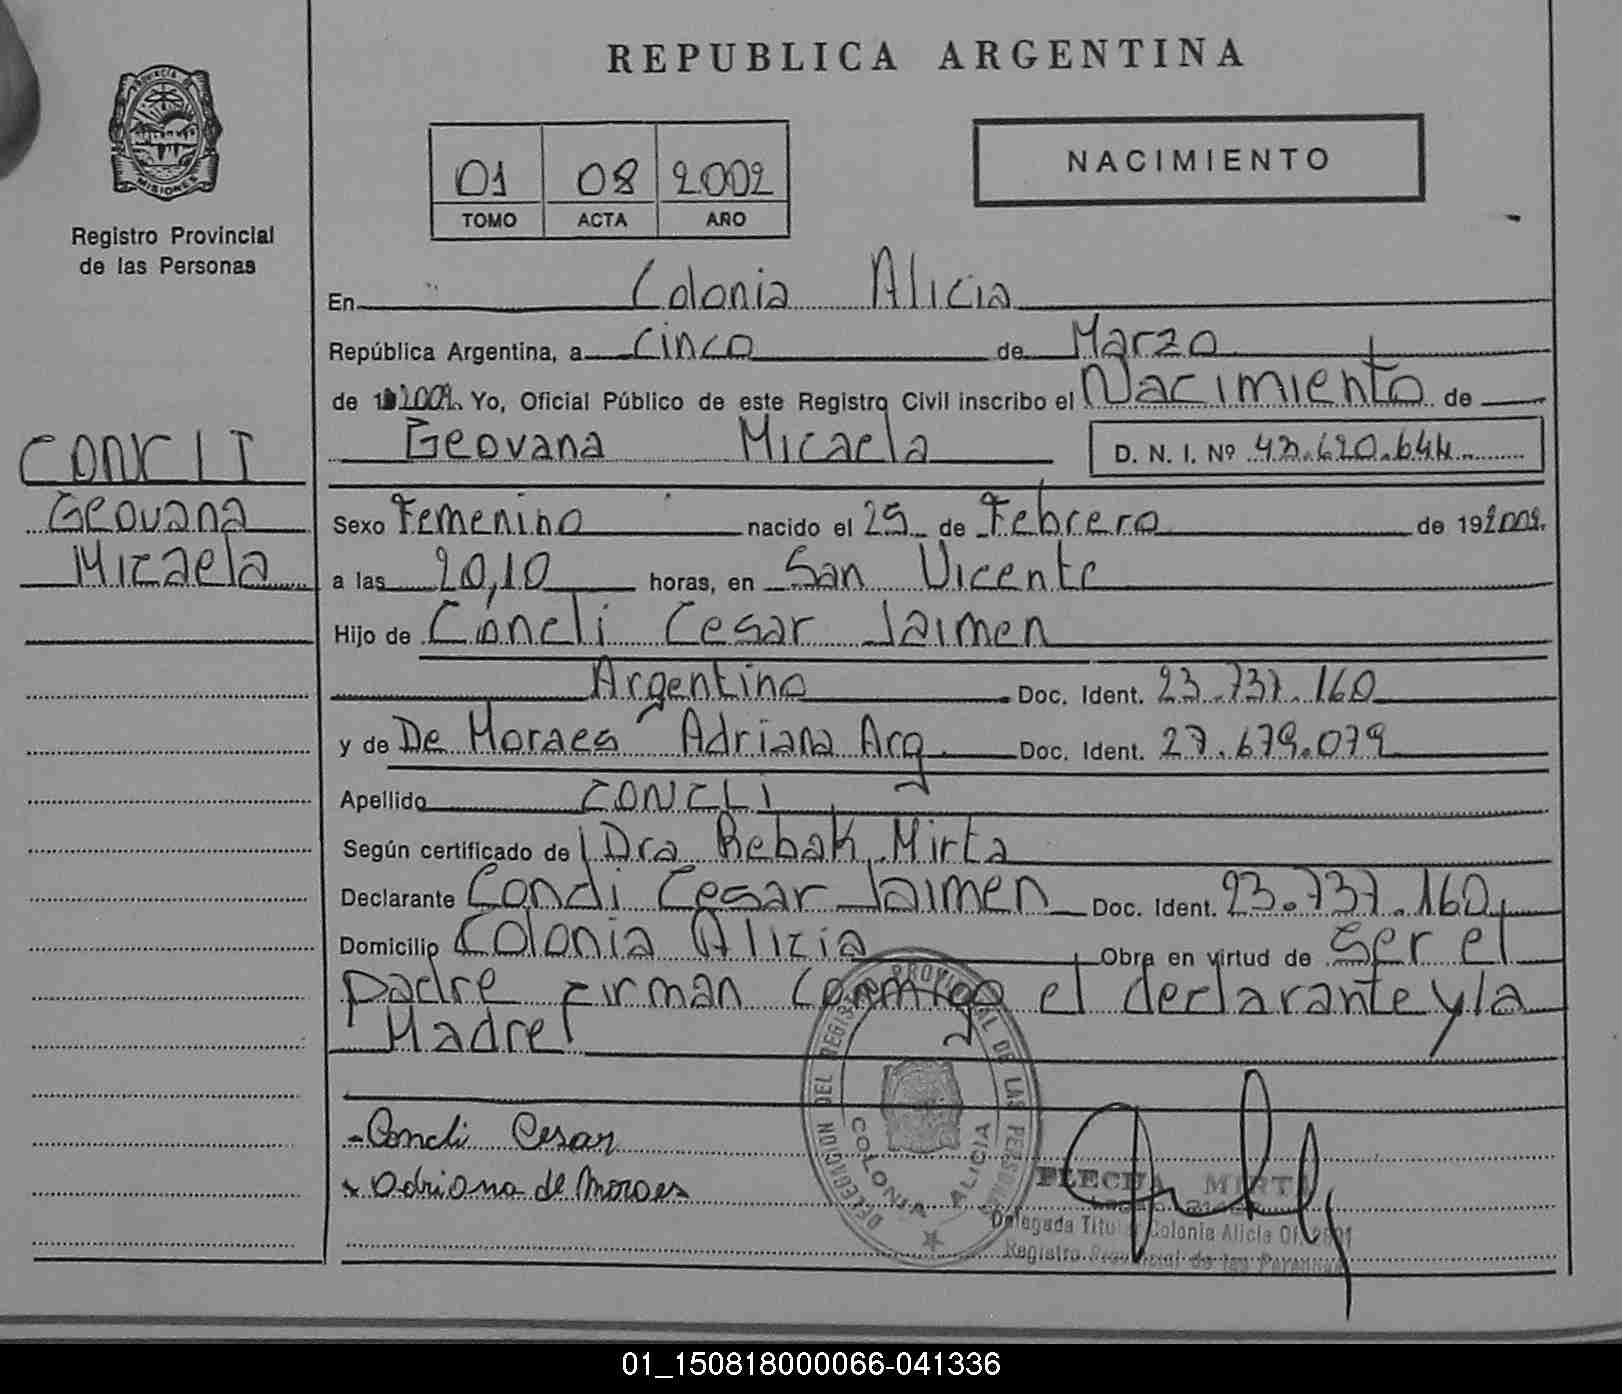 REPUBLICA ARGENTINA
PROVINCIA DE MISIONES
Registro Provincial
de las Personas
01 08 2002
TOMO ACTA AÑO
NACIMIENTO
En Colonia Alicia
República Argentina, a Cinco de Marzo
de 2002. Yo, Oficial Público de este Registro Civil inscribo el Nacimiento de
Geovana Micaela D. N. I. Nº
CONCLI
Geovana
Micaela
Sexo Femenino nacido el 25 de Febrero de 19 2002.
a las 20,10 horas, en San Vicente
Hijo de Concli Cesar Jaimen
Argentino Doc. Ident. 23.737.160
y de De Moraes Adriana Arg. Doc. Ident. 27.679.079
Apellido CONCLI
Según certificado de Dra Rebak Mirta
Declarante Concli Cesar Jaimen Doc. Ident. 23.737.160
Domicilio Colonia Alicia Obra en virtud de Ser el
padre firman conmigo el declarante y la
Madre
DELEGACION DEL REGISTRO PROVINCIAL DE LAS PERSONAS
COLONIA ALICIA
- Concli Cesar
x Adriana de Moraes
FLECHA MIRTA
Delegada Titular Colonia Alicia
Registro Provincial de las Personas
01_150818000066-041336